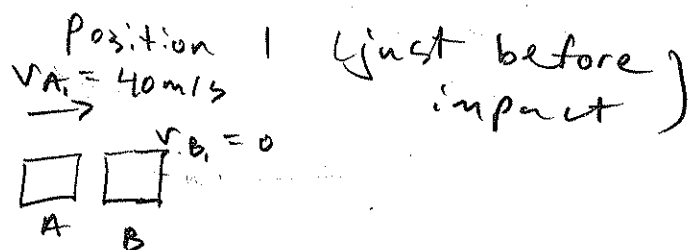 Position 1 (just before
impact)
VA₁ = 40m/s
VB₁ = 0
A B